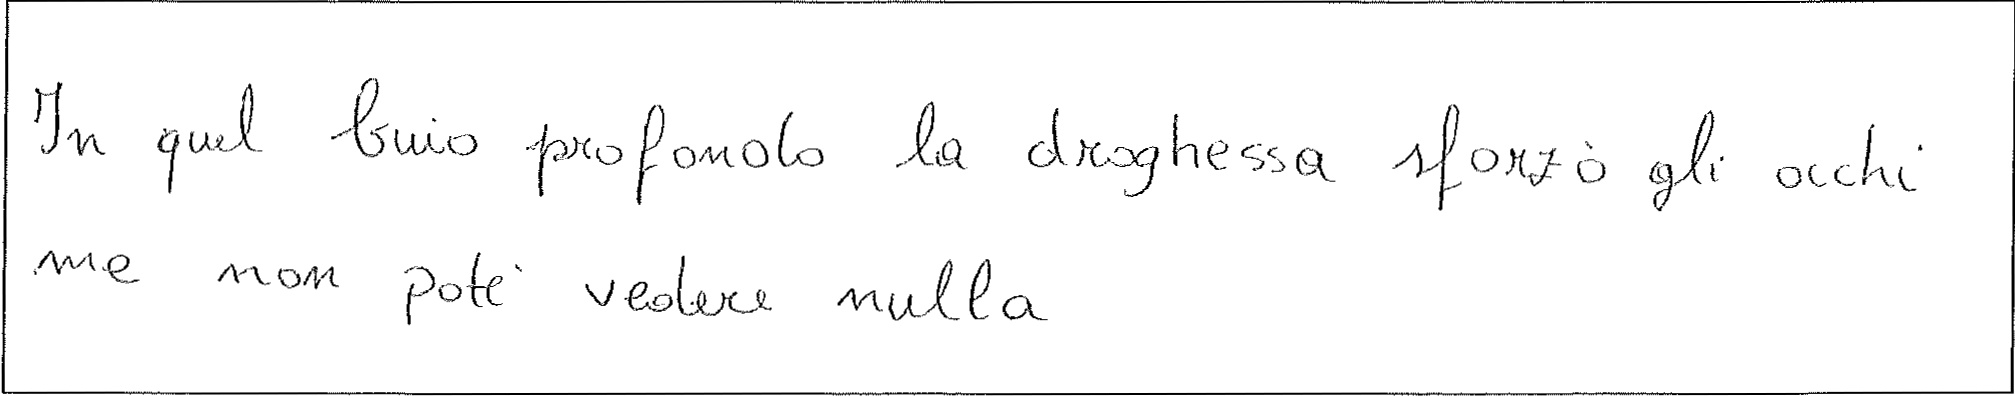 In quel buio profondo la droghessa sforzò gli occhi
me non poté vedere nulla